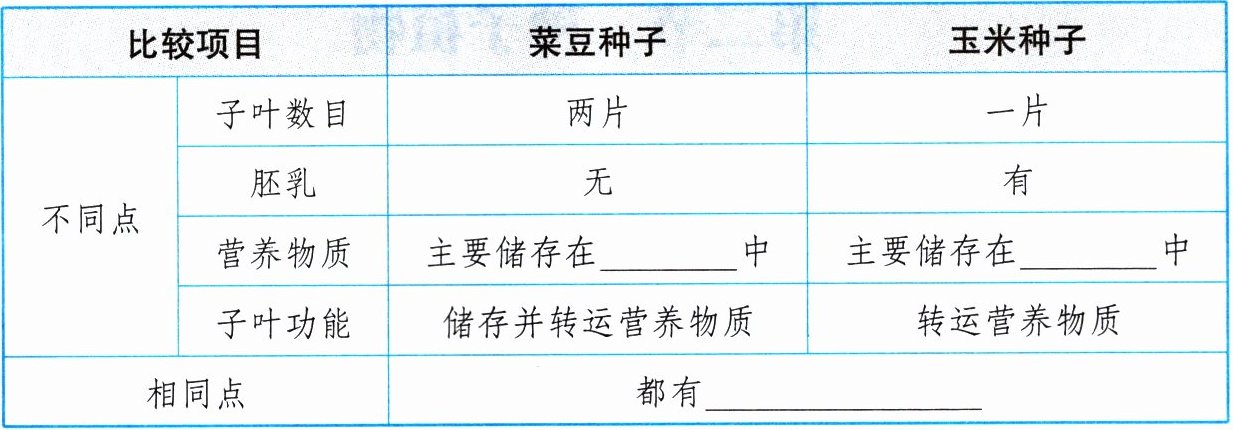 比较项目 菜豆种子 玉米种子
不同点 子叶数目 两片 一片
胚乳 无 有
营养物质 主要储存在________中 主要储存在________中
子叶功能 储存并转运营养物质 转运营养物质
相同点 都有________________